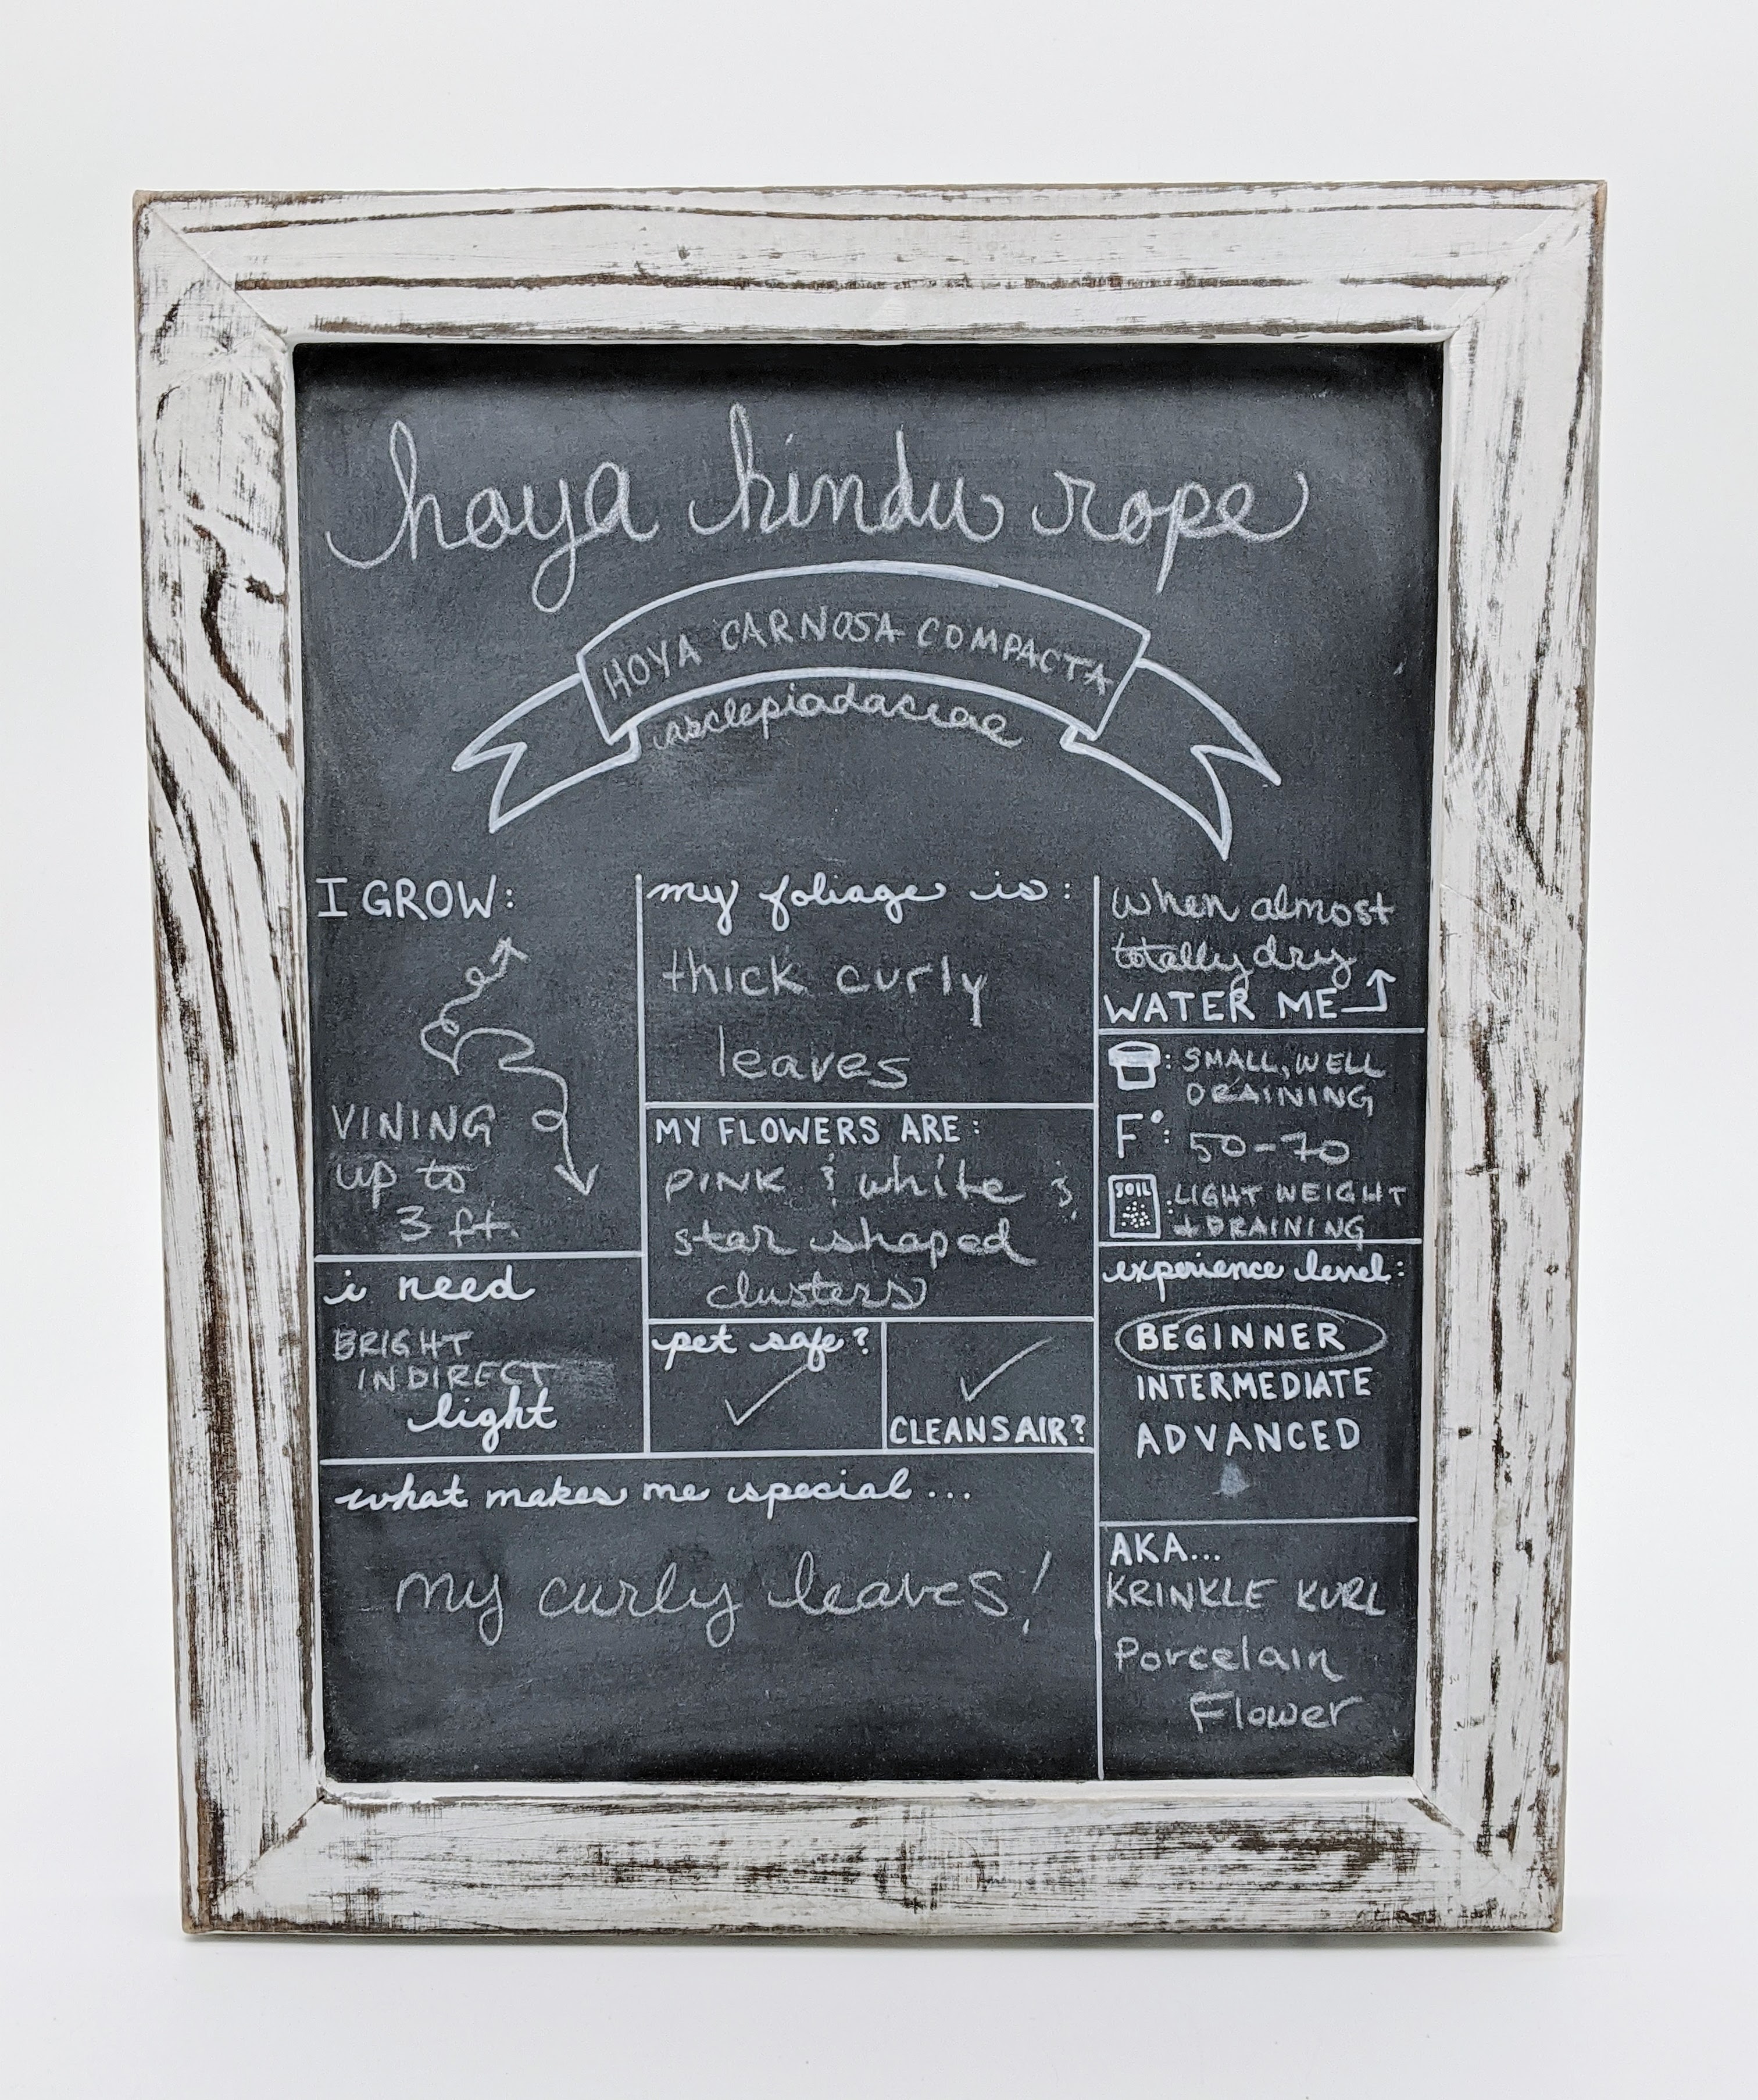 hoya hindu rope
HOYA CARNOSA COMPACTA
asclepiadaceae
I GROW:
VINING
up to
3 ft.
i need
BRIGHT
INDIRECT
light
my foliage is:
thick curly
leaves
MY FLOWERS ARE:
PINK & white &
star shaped
clusters
pet safe? ✓
✓
CLEANS AIR?
what makes me special...
my curly leaves!
when almost
totally dry
WATER ME
: SMALL, WELL
DRAINING
F°: 50-70
SOIL: LIGHT WEIGHT
+ DRAINING
experience level:
BEGINNER
INTERMEDIATE
ADVANCED
AKA...
KRINKLE KURL
Porcelain
Flower